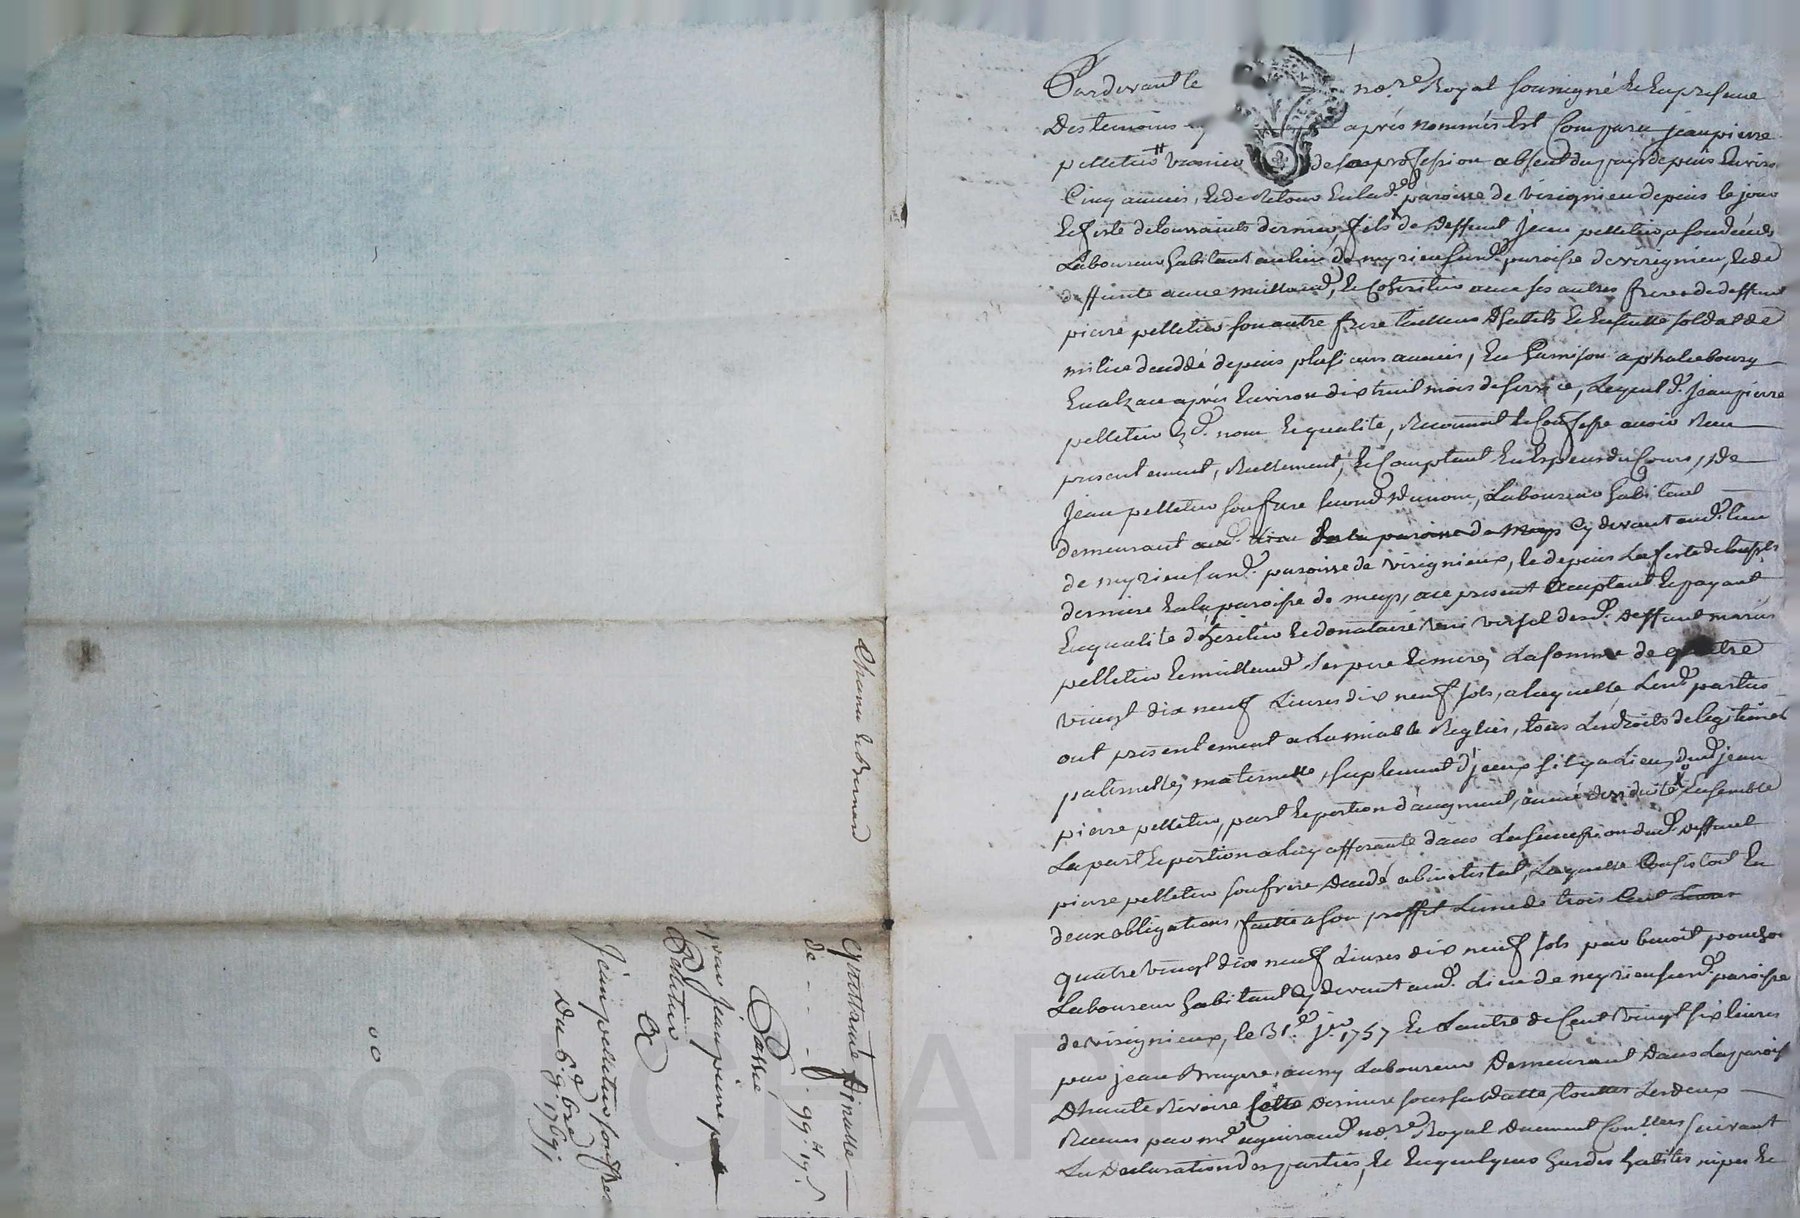 Pardevant le nore Royal soussigné & En presence
Des temoins après nommés Est Comparu jean pierre
pelletier de sa profession absent du pays depuis Environ
Cinq années, & de Retour En lad. paroisse de virignieu depuis le jour
& feste de toussaints dernier, fils de deffunt jean pelletier
Laboureur habitant au lieu de paroisse de virignieu, & de
deffunte anne milland, & Coheritier avec ses autres freres de deffunt
pierre pelletier son autre frere tailleur D'habits & Ensuitte soldat de
milice deceddé depuis plusieurs années, En Garnison a phalsebourg
En alzace après Environ dix huit mois de service, Lequel d. jean pierre
pelletier nom & qualité, Reconnoit & Confesse avoir Reçu
presentement, Reellement, & Comptant En Especes du Cours, De
jean pelletier son frere second du nom, Laboureur habitant
demeurant de la paroisse de meys Cy devant aud. lieu
de paroisse de virignieux, & depuis La feste de
derniere En la paroisse de meys, ace present acceptant & payant
En qualité d'heritier & donataire universel desd. Deffunt mariés
pelletier & millaud ses pere & mere, La somme de quatre
vingt dix neuf Livres dix neuf sols, a laquelle Lesd. parties
ont presentement a Lamiable Reglée, tous Les droits de legitime
paternelle, maternelle, suplement d'jceux sil y a Lieu, dud. jean
pierre pelletier, part & portion d'augment, Ensemble
La part & portion a Luy afferante dans La succession dud. deffunt
pierre pelletier son frere Decedé abintestat, Laquelle Consistoit En
deux obligations, faittes a son proffit Lune de trois Cent
quatre vingt dix neuf Livres dix neuf sols par benoit
Laboureur habitant Cy devant aud. Lieu de paroisse
de virignieux, le 31e jer 1757 & Lautre de Cent vingt six livres
par jean Bruyere, aussy Laboureur Demeurant Dans La paroisse
Dhaute Rivoire Cette Derniere sous sa datte, touttes Les deux
Reçues par me nore Royal Duement Conllées suivant
La Declaration des parties, & En quelques hardes habits nipes &
Quittance finalle
de - - - 99# 19 s
Passée
par jean pierre
Peletier
A
Jean peletier son frere
Du 6e 9bre 1769